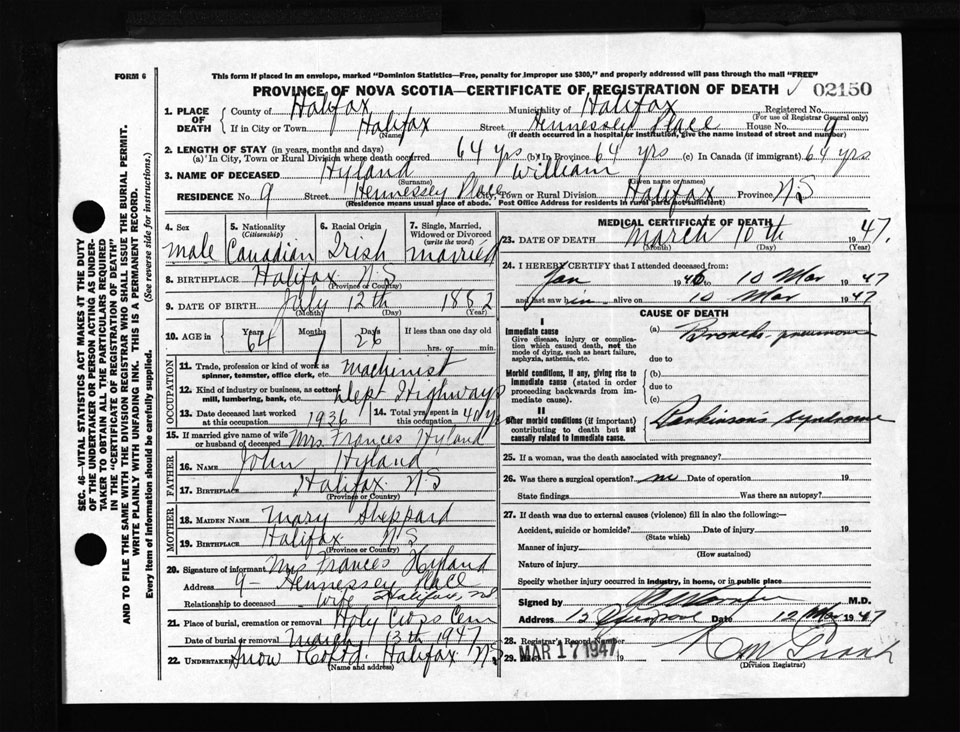 FORM 6
This form if placed in an envelope, marked "Dominion Statistics—Free, penalty for improper use $300," and properly addressed will pass through the mail "FREE"
PROVINCE OF NOVA SCOTIA—CERTIFICATE OF REGISTRATION OF DEATH 02150
SEC. 46—VITAL STATISTICS ACT MAKES IT THE DUTY
OF THE UNDERTAKER OR PERSON ACTING AS UNDER-
TAKER TO OBTAIN ALL THE PARTICULARS REQUIRED
IN THE "CERTIFICATE OF REGISTRATION OF DEATH"
AND TO FILE THE SAME WITH THE DIVISION REGISTRAR WHO SHALL ISSUE THE BURIAL PERMIT.
WRITE PLAINLY WITH UNFADING INK. THIS IS A PERMANENT RECORD.
Every item of information should be carefully supplied. (See reverse side for instructions.)
1. PLACE OF DEATH County of Halifax Municipality of Halifax Registered No.
(For use of Registrar General only)
If in City or Town Halifax Street Hennessey Place House No. 9
(Name) (If death occurred in a hospital or institution, give the name instead of street and number)
2. LENGTH OF STAY (in years, months and days)
(a) In City, Town or Rural Division where death occurred 64 yrs (b) In Province 64 yrs (c) In Canada (if immigrant) 64 yrs
3. NAME OF DECEASED Hyland William
(Surname) (Given name or names)
RESIDENCE No. 9 Street Hennessey Place City, Town or Rural Division Halifax Province N S
(Residence means usual place of abode. Post Office Address for residents in rural parts not sufficient)
4. Sex 5. Nationality (Citizenship) 6. Racial Origin 7. Single, Married, Widowed or Divorced (write the word)
male Canadian Irish married
8. BIRTHPLACE Halifax N S
(Province or Country)
9. DATE OF BIRTH July 12th 1882
(Month) (Day) (Year)
10. AGE in Years Months Days If less than one day old
64 7 26 hrs. or min.
OCCUPATION
11. Trade, profession or kind of work as spinner, teamster, office clerk, etc. machinist
12. Kind of industry or business, as cotton mill, lumbering, bank, etc. Dept Highways
13. Date deceased last worked at this occupation 1936 14. Total yrs. spent in this occupation 40 yrs
15. If married give name of wife or husband of deceased Mrs. Frances Hyland
FATHER
16. Name John Hyland
17. Birthplace Halifax N S
(Province or Country)
MOTHER
18. MAIDEN NAME Mary Sheppard
19. BIRTHPLACE Halifax N S
(Province or Country)
20. Signature of informant Mrs Frances Hyland
Address 9 - Hennessey Place
Relationship to deceased wife Halifax, NS
21. Place of burial, cremation or removal Holy Cross Cem
Date of burial or removal March 13th 1947
22. Undertaker Snow & Co Ltd. Halifax N S
(Name and address)
MEDICAL CERTIFICATE OF DEATH
23. DATE OF DEATH March 10th 1947.
(Month) (Day) (Year)
24. I HEREBY CERTIFY that I attended deceased from:
Jan 1946 to 10 Mar 1947
and last saw him alive on 10 Mar 1947
CAUSE OF DEATH
I
Immediate cause (a) Broncho-pneumonia
Give disease, injury or complication which caused death, not the mode of dying, such as heart failure, asphyxia, asthenia, etc.
due to
Morbid conditions, if any, giving rise to immediate cause (stated in order proceeding backwards from immediate cause). (b)
due to
(c)
II
Other morbid conditions (if important) contributing to death but not causally related to immediate cause. Parkinson's syndrome
25. If a woman, was the death associated with pregnancy?
26. Was there a surgical operation? no Date of operation 19
State findings Was there an autopsy?
27. If death was due to external causes (violence) fill in also the following:—
Accident, suicide or homicide? Date of injury 19
(State which)
Manner of injury
(How sustained)
Nature of injury
Specify whether injury occurred in industry, in home, or in public place
Signed by M.D.
Address Date 12 Mar 1947
28. Registrar's Record Number
29. MAR 17 1947 19
(Division Registrar)